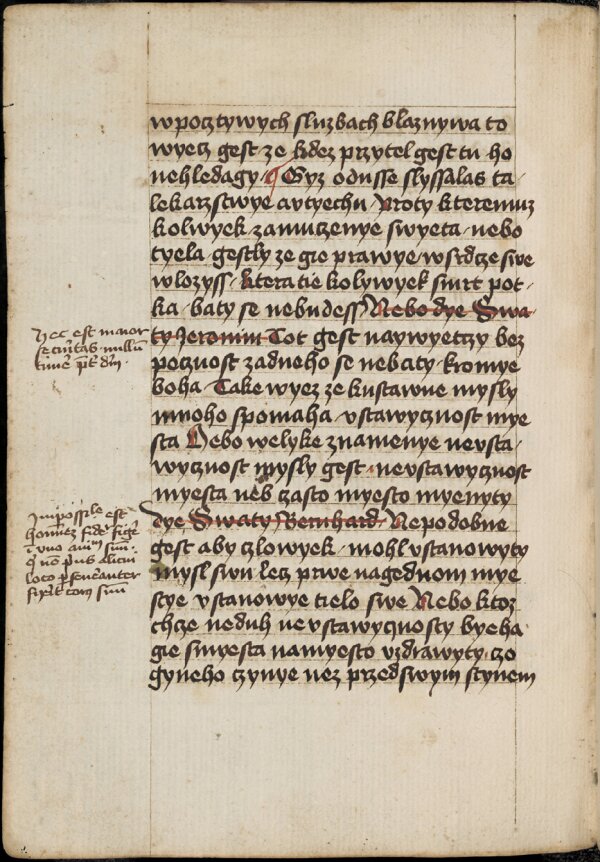 wpocztywych sluzbach blaznywa to
wyecz gest ze kdez przytel gest tu ho
nehledagy Gyz odusse slyssalas ta
lekarzstwye artyechu Proty kteremuz
kolwyek zamuczenye swyeta nebo
tyela gestly ze gie prawye wsrdcze swe
wlozyss kteratie kolywyek smrt pot
ka baty se nebudess Nebo dye Swa
ty Jeronim Tot gest naywyetczy bez
pecznost zadneho se nebaty kromye
boha Take wyez ze kustawne mysly
mnoho spomaha vstawycznost mye
sta Nebo welyke znamenye nevsta
wycznost mysly gest nevstawycznost
myesta neb czasto myesto myenyty
dye Swaty Bernhard Nepodobne
gest aby czlowyek mohl vstanowyty
mysl swu lecz prwe nagednom mye
stye vstanowye tielo swe Nebo ktoz
chcze neduh nevstawycznosty byeha
gie smyesta namyesto vzdrawyty czo
gyneho czynye nez przedswym stynem
Hec est maior
securitas nullum
timere preter deum
Impossibile est
hominem fideliter figere
in uno animum suum
qui non prius alicui
loco perseueranter
corpus suum